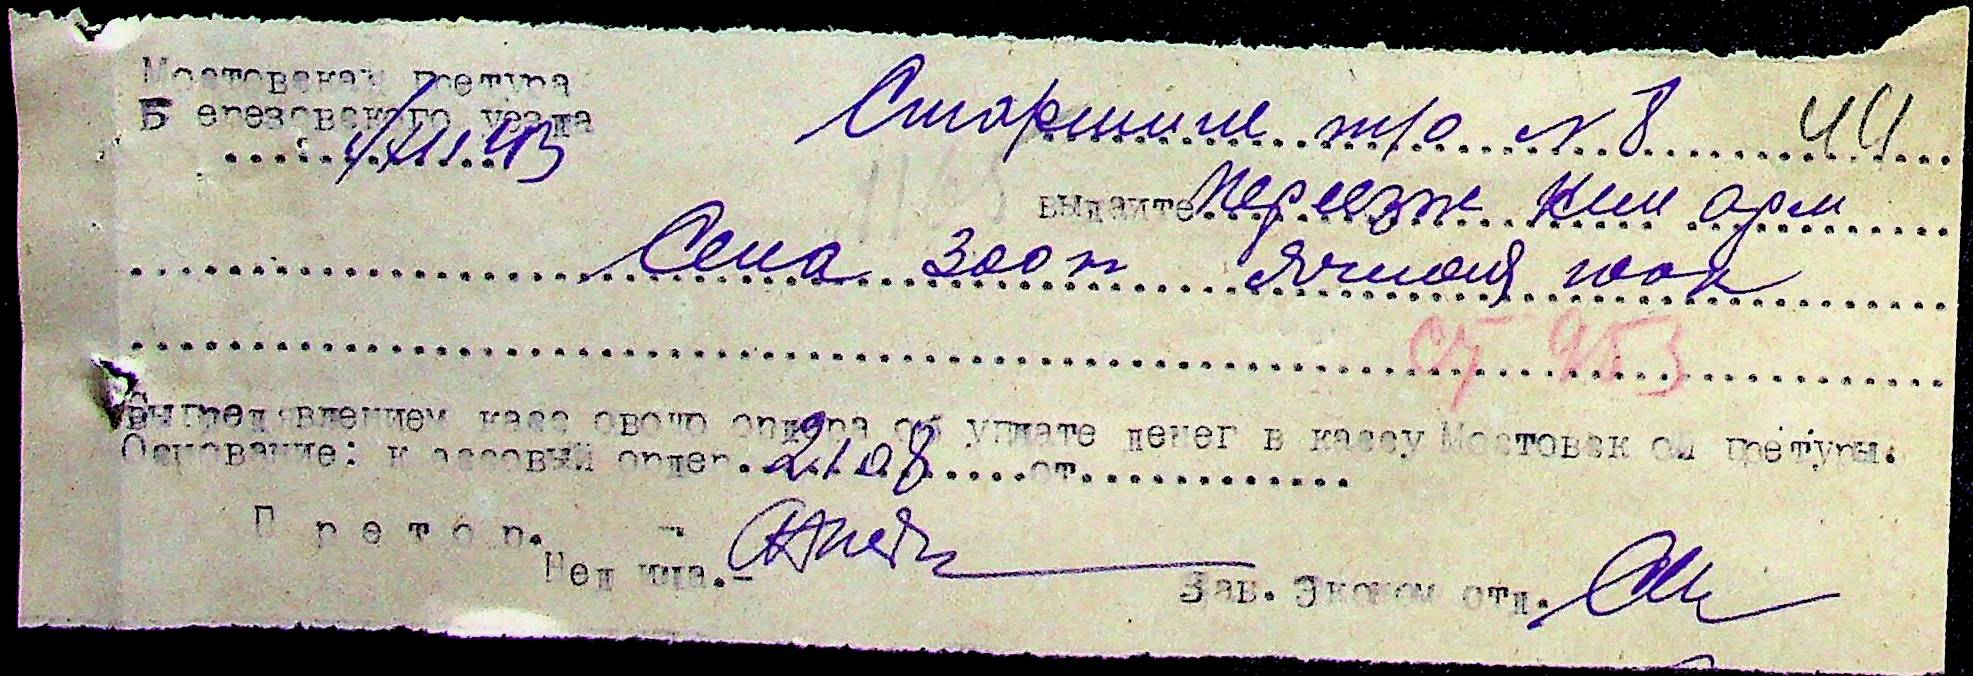 Мостовская претура
Березовского уезда
Старшине т/о N 8 44
1/XII 43
1165
выдайте Переезж Ким арм
Сена 300 к Ячменя 100 к
Выпред явлением касс ового ордера об уплате денег в кассу Мостовск ой претуры.
Основание: к ассовый ордер. 2108 от
Претор. -
Нед ица.-
Зав. Эконом отд.